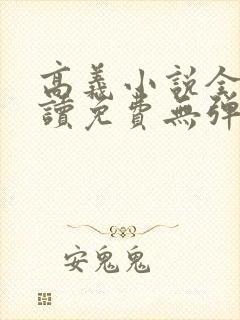 高義小說全
讀免費無彈
安鬼鬼